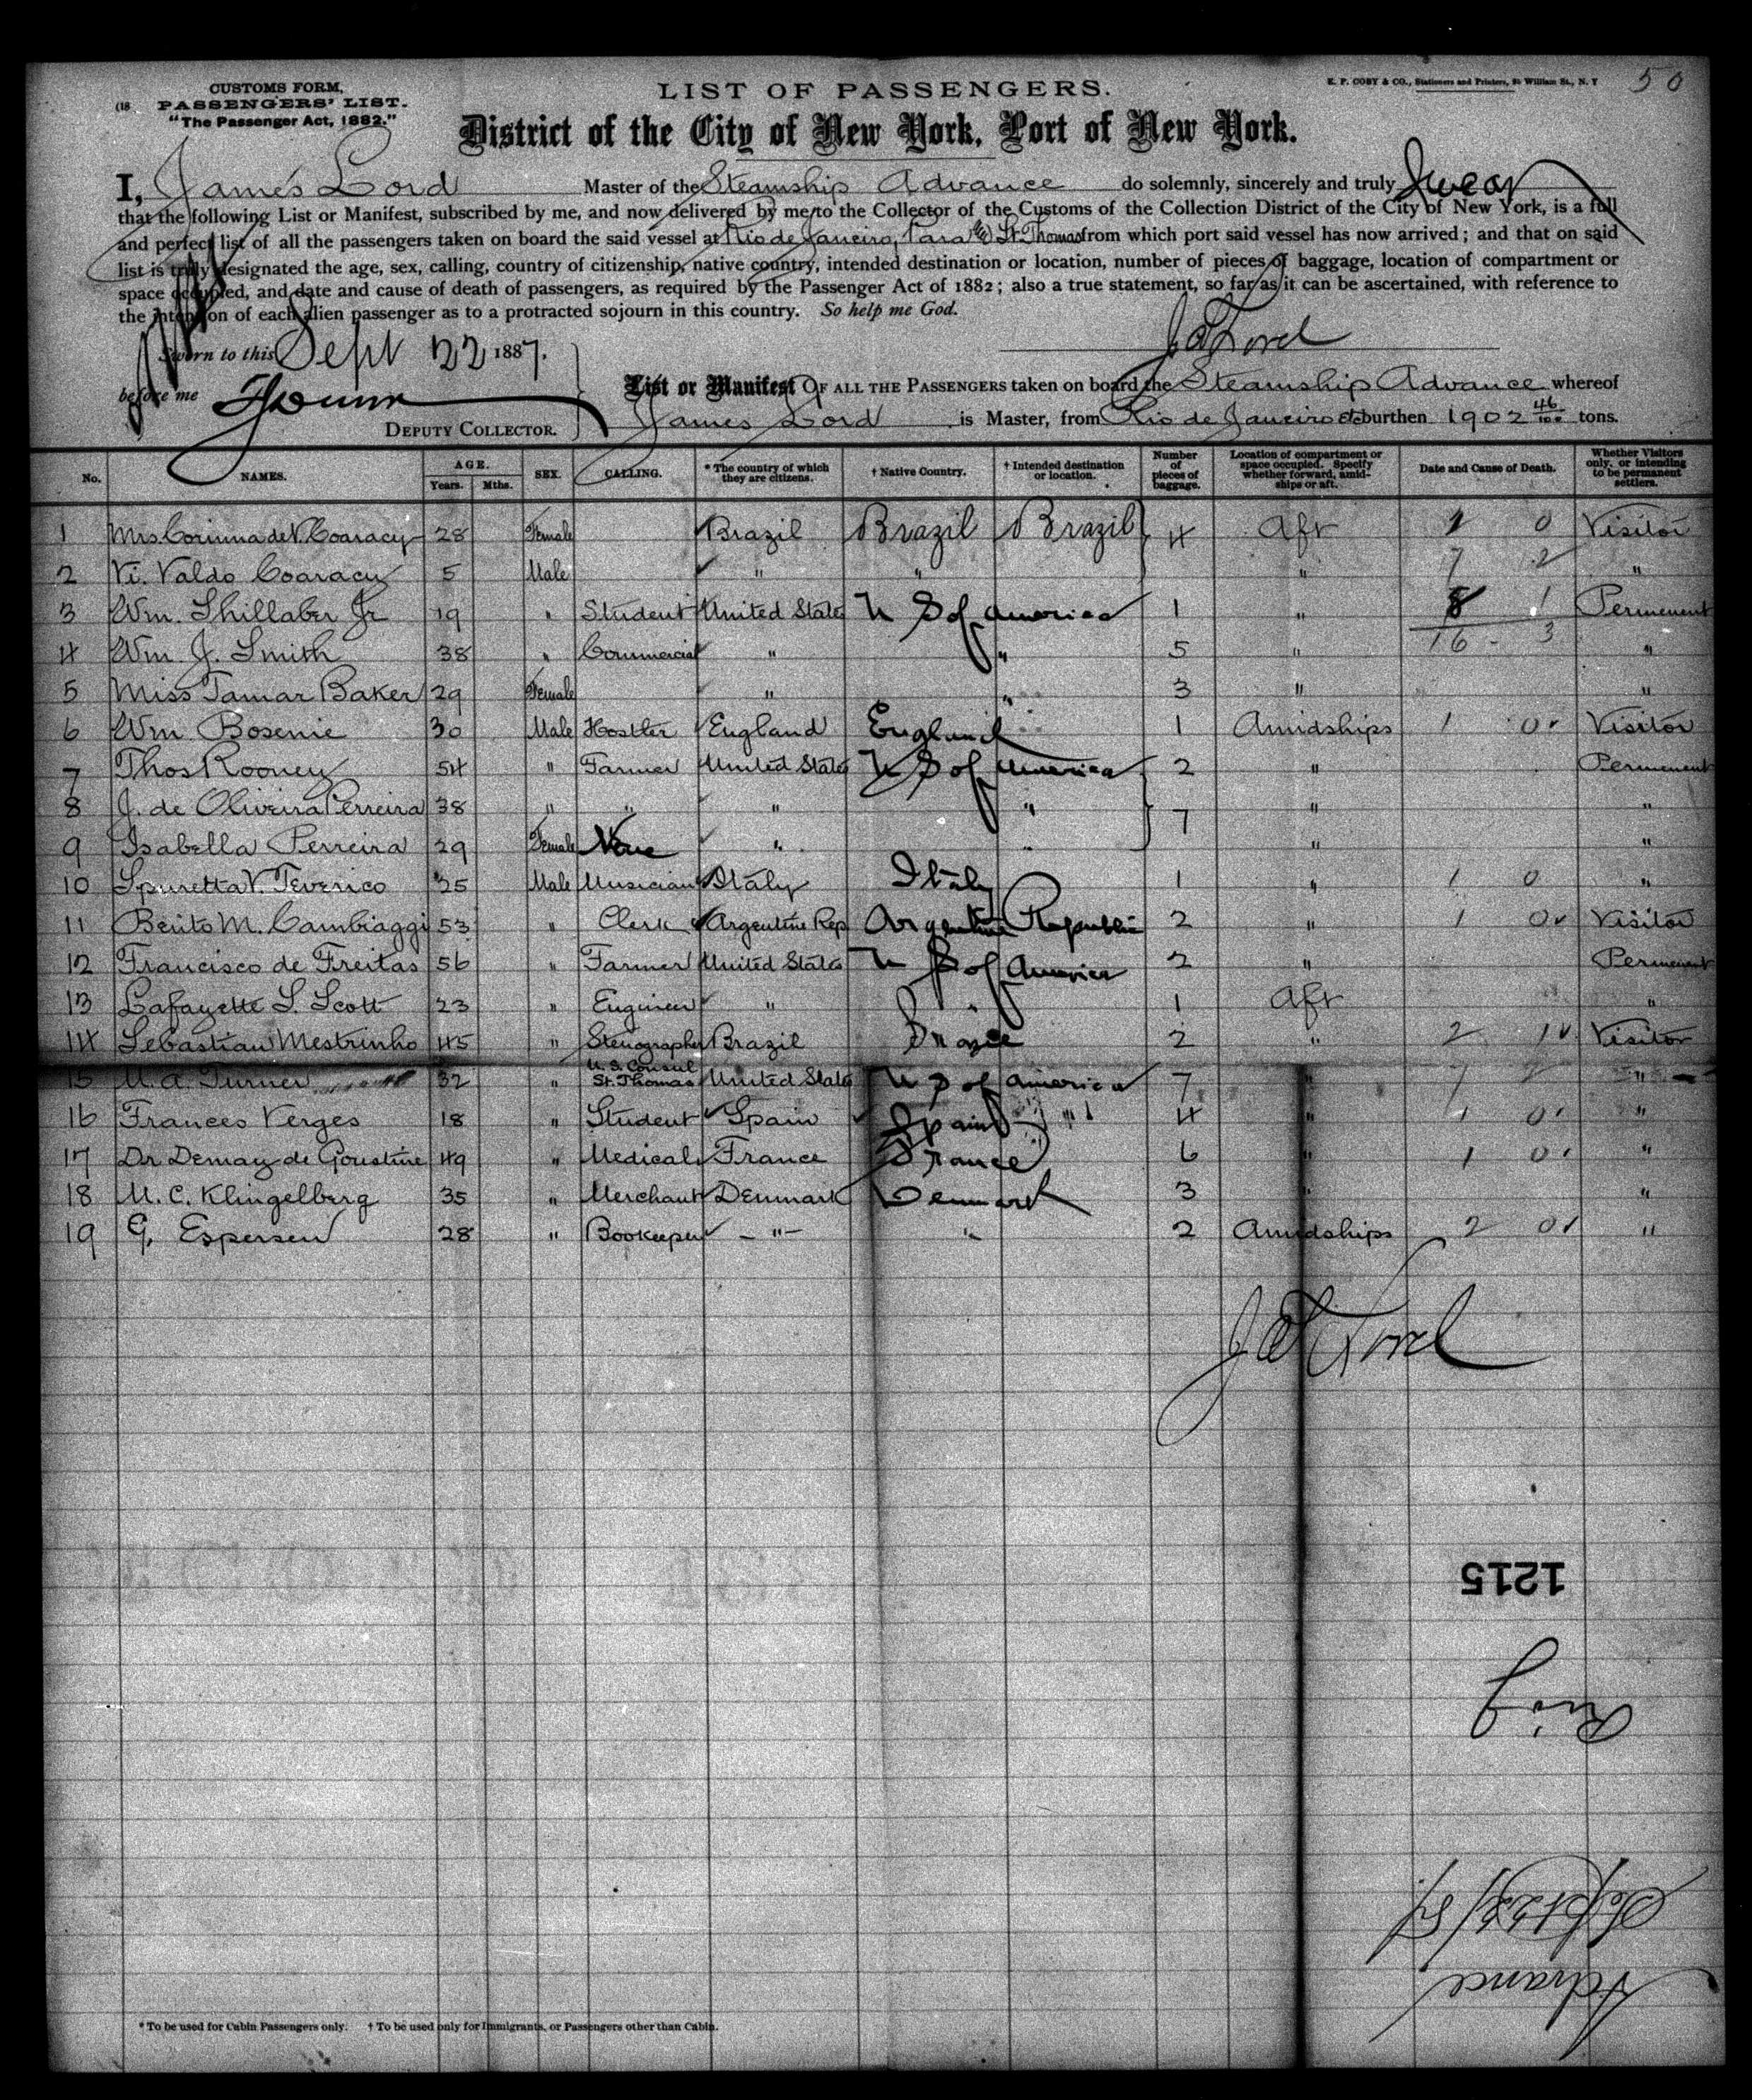 CUSTOMS FORM,
PASSENGERS' LIST.
"The Passenger Act, 1882."
LIST OF PASSENGERS.
E. P. COBY & CO., Stationers and Printers, William St., N. Y
50
District of the City of New York, Port of New York.
I, James Lord Master of the Steamship Advance do solemnly, sincerely and truly Swear
that the following List or Manifest, subscribed by me, and now delivered by me to the Collector of the Customs of the Collection District of the City of New York, is a full
and perfect list of all the passengers taken on board the said vessel at Rio de Janeiro, Para & St. Thomas from which port said vessel has now arrived; and that on said
list is truly designated the age, sex, calling, country of citizenship, native country, intended destination or location, number of pieces of baggage, location of compartment or
space occupied, and date and cause of death of passengers, as required by the Passenger Act of 1882; also a true statement, so far as it can be ascertained, with reference to
the intention of each alien passenger as to a protracted sojourn in this country. So help me God.
Sworn to this Sept 22 1887.
before me
DEPUTY COLLECTOR.
List or Manifest OF ALL THE PASSENGERS taken on board the Steamship Advance whereof
James Lord is Master, from Rio de Janeiro etc burthen 1902 46/100 tons.
No. NAMES. AGE. Years. Mths. SEX. CALLING. * The country of which they are citizens. † Native Country. † Intended destination or location. Number of pieces of baggage. Location of compartment or space occupied. Specify whether forward, amidships or aft. Date and Cause of Death. Whether Visitors only, or intending to be permanent settlers.
1 Mrs. Corinna de V. Coaracy 28 Female Brazil Brazil Brazil 4 Aft 1 0 Visitor
2 Vi. Valdo Coaracy 5 Male " " " 7 2 "
3 Wm. Shillaber Jr 19 " Student United States U S of America 1 " 8 1 Permenent
4 Wm. J. Smith 38 " Commercial " " 5 " 16 - 3 "
5 Miss Tamar Baker 29 Female " " 3 " "
6 Wm Bosenie 30 Male Hostler England England 1 Amidships 1 0 Visitor
7 Thos Rooney 54 " Farmer United States U S of America 2 " Permenent
8 J. de Oliveira Perreira 38 " " " " 7 " "
9 Isabella Perreira 29 Female None " " " "
10 Spuretta V. Teverico 25 Male Musician Italy Italy 1 " 1 0 "
11 Benito M. Cambiaggi 53 " Clerk Argentine Rep Argentine Republic 2 " 1 0 Visitor
12 Francisco de Freitas 56 " Farmer United States U S of America 2 " Permenent
13 Lafayette S. Scott 23 " Engineer " " 1 Aft "
14 Sebastian Mestrinho 45 " Stenographer Brazil Brazil 2 " 2 1 Visitor
15 M. A. Turner 32 " U. S. Consul St. Thomas United States U S of America 7 " "
16 Frances Verges 18 " Student Spain Spain " 4 " 1 0 "
17 Dr Demay de Goustine 49 " Medical France France 6 " 1 0 "
18 M. C. Klingelberg 35 " Merchant Denmark Denmark 3 " "
19 G. Espersen 28 " Bookeeper " " 2 Amidships 2 0 "
1215
Rio
Sept 22/87
Advance
* To be used for Cabin Passengers only. † To be used only for Immigrants, or Passengers other than Cabin.